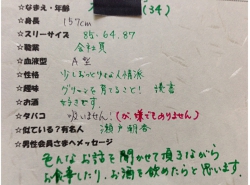 ☆なまえ・年齢 (34)
☆身長 157cm
☆スリーサイズ 85.64.87
☆職業 会社員
☆血液型 A型
☆性格 少しおっとりな人情派
☆趣味 グリーンを育てること! 読書
☆お酒 好きです。
☆タバコ 吸いません!(が、嫌でもありません)
☆似ている?有名人 瀬戸朝香
☆男性会員さまへメッセージ
色んなお話を聞かせて頂きながら
お食事したり、お酒を飲めたらと思います。